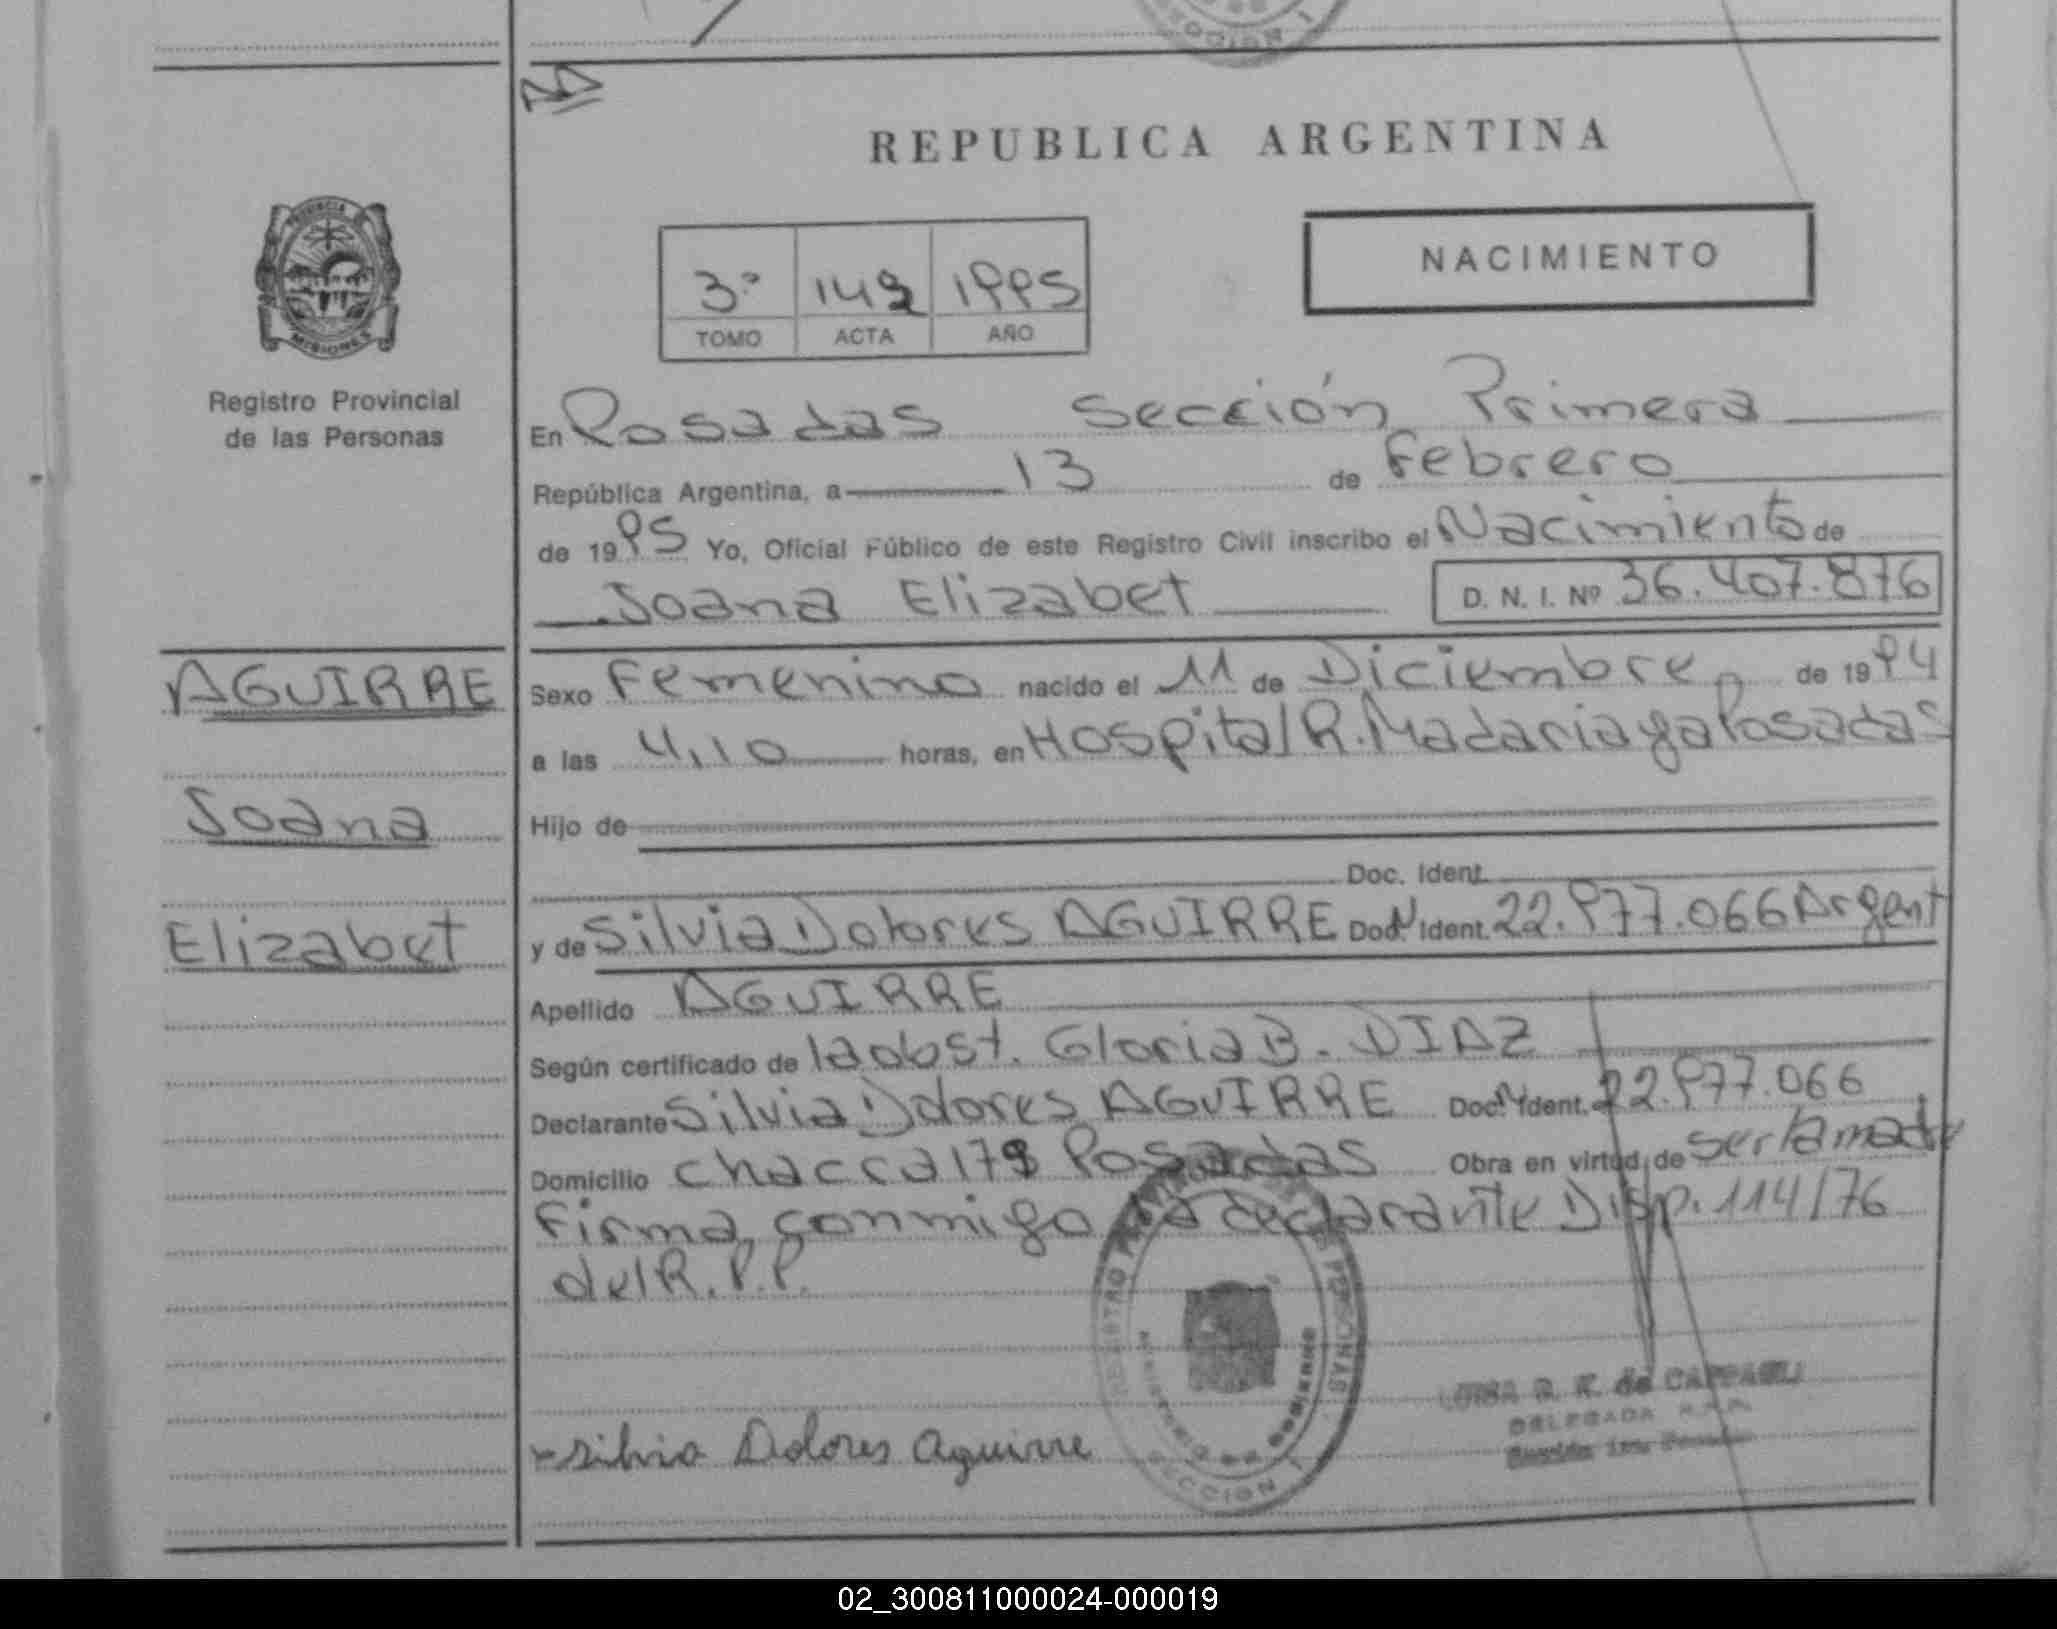 REPUBLICA ARGENTINA
NACIMIENTO
3º 142 1995
TOMO ACTA AÑO
PROVINCIA
MISIONES
Registro Provincial
de las Personas
En Posadas Sección Primera
República Argentina, a 13 de Febrero
de 1995 Yo, Oficial Público de este Registro Civil inscribo el Nacimiento de
Joana Elizabet D. N. I. Nº 36.407.876
AGUIRRE
Joana
Elizabet
Sexo Femenino nacido el 11 de Diciembre de 1994
a las 4,10 horas, en Hospital R. Madariaga Posadas
Hijo de
Doc. Ident.
y de Silvia Dolores AGUIRRE Doc. Ident. 22.977.066 Argent
Apellido AGUIRRE
Según certificado de la obst. Gloria B. DIAZ
Declarante Silvia Dolores AGUIRRE Doc. Ident. 22.977.066
Domicilio chacra 179 Posadas Obra en virtud de ser la madre
Firma conmigo la declarante Disp. 114/76
del R.P.P.
Silvia Dolores Aguirre
SECCION 1
DELEGADA R.P.P.
02_300811000024-000019